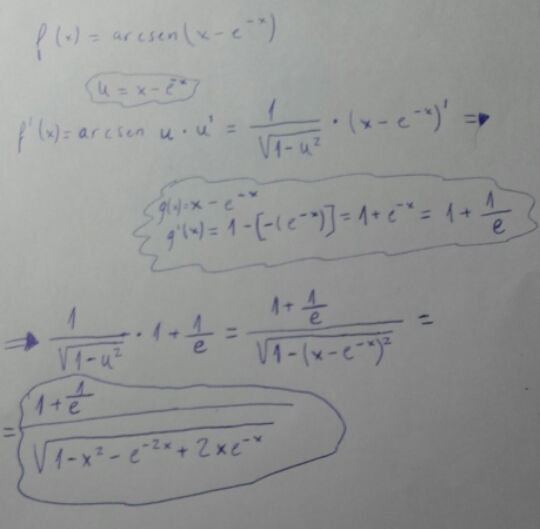 f(x) = arcsen(x - e^{-x})
u = x - e^{-x}
f'(x) = arcsen u · u' = \frac{1}{\sqrt{1-u^2}} · (x - e^{-x})' ⇒
g(x) = x - e^{-x}
g'(x) = 1 - [-(e^{-x})] = 1 + e^{-x} = 1 + \frac{1}{e}
⇒ \frac{1}{\sqrt{1-u^2}} · 1 + \frac{1}{e} = \frac{1 + \frac{1}{e}}{\sqrt{1-(x-e^{-x})^2}} =
= \frac{1 + \frac{1}{e}}{\sqrt{1-x^2-e^{-2x}+2xe^{-x}}}